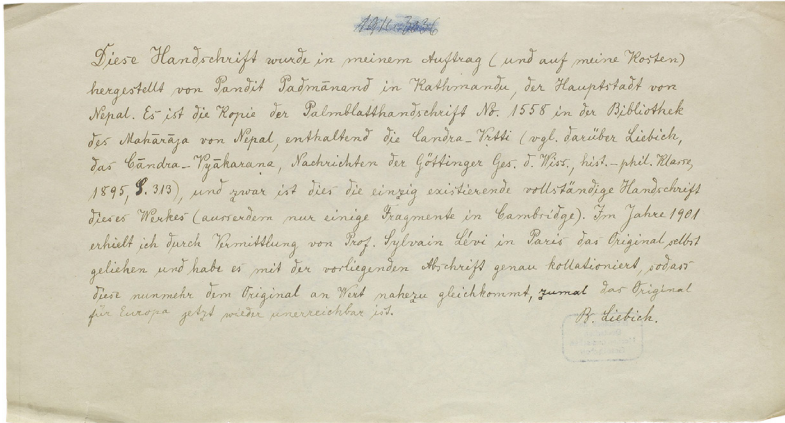 Diese Handschrift wurde in meinem Auftrag (und auf meine Kosten)
hergestellt von Pandit Padmānand in Kathmandu, der Hauptstadt von
Nepal. Es ist die Kopie der Palmblatthandschrift No. 1558 in der Bibliothek
des Mahārāja von Nepal, enthaltend die Candra-Vṛtti (vgl. darüber Liebich,
das Cāndra-Vyākaraṇa, Nachrichten der Göttinger Ges. d. Wiss., hist.-phil. Klasse,
1895, S. 313), und zwar ist dies die einzig existierende vollständige Handschrift
dieses Werkes (ausserdem nur einige Fragmente in Cambridge). Im Jahre 1901
erhielt ich durch Vermittlung von Prof. Sylvain Lévi in Paris das Original selbst
geliehen und habe es mit der vorliegenden Abschrift genau kollationiert, sodass
diese nunmehr dem Original an Wert nahezu gleichkommt, zumal das Original
für Europa jetzt wieder unerreichbar ist.
B. Liebich.